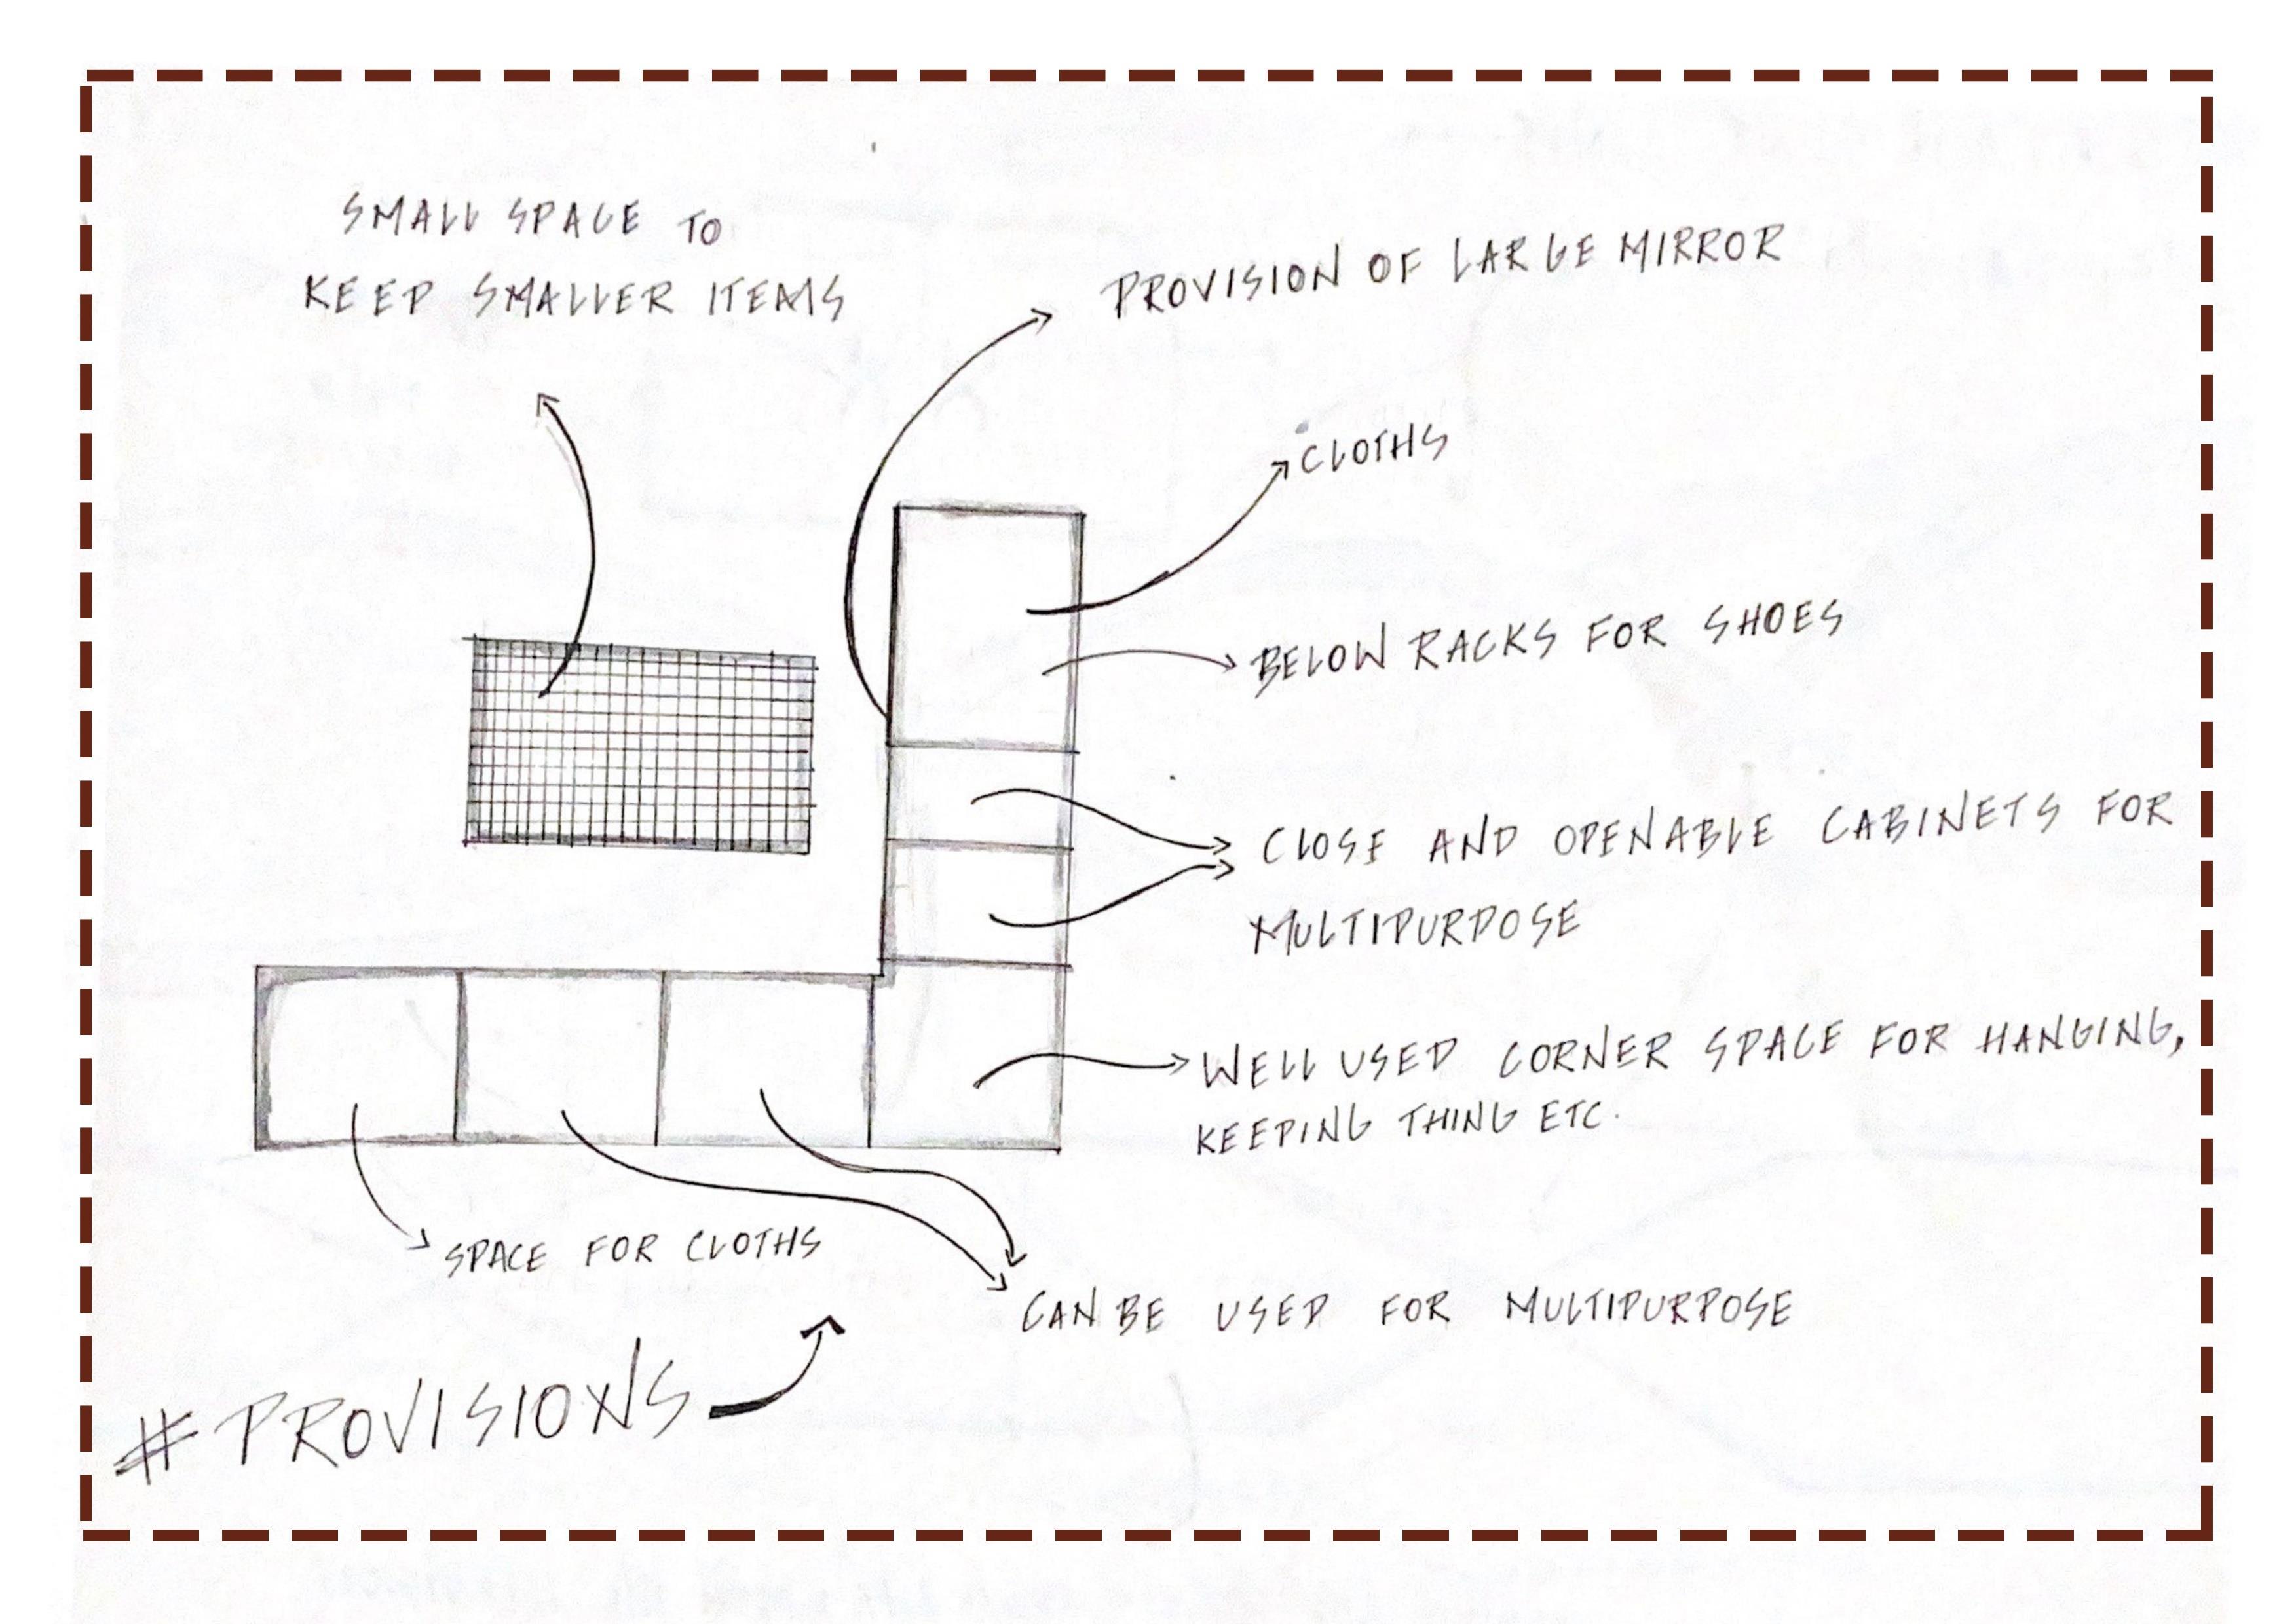 SMALL SPACE TO
KEEP SMALLER ITEMS
PROVISION OF LARGE MIRROR
CLOTHS
BELOW RACKS FOR SHOES
CLOSE AND OPENABLE CABINETS FOR
MULTIPURPOSE
WELL USED CORNER SPACE FOR HANGING,
KEEPING THING ETC.
SPACE FOR CLOTHS
CAN BE USED FOR MULTIPURPOSE
#PROVISIONS